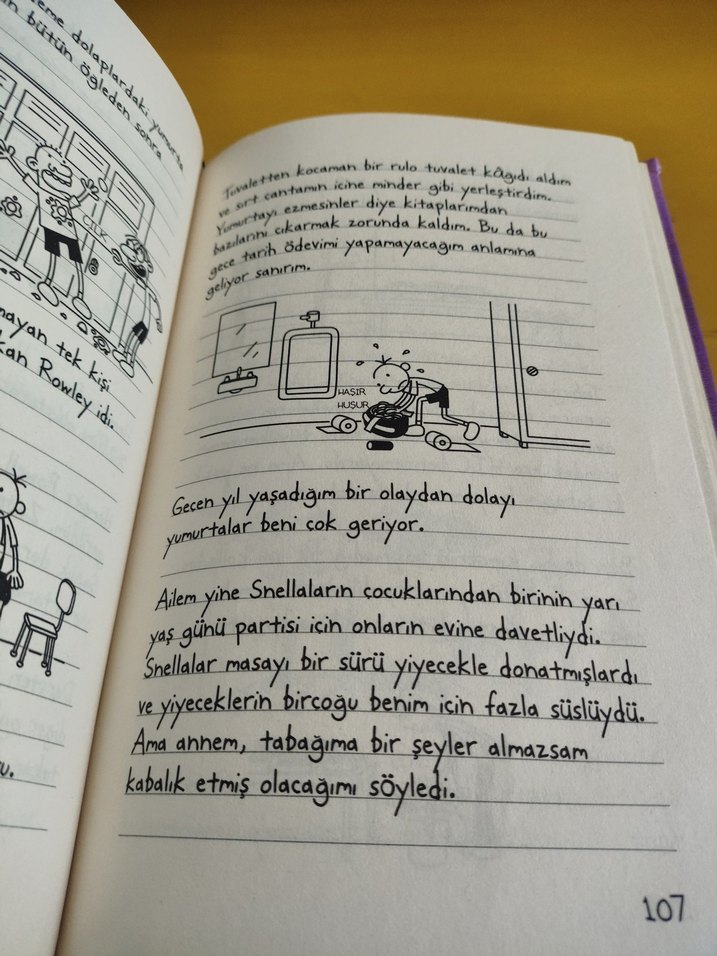 dolaplardaki yumurta
bütün öğleden sonra
CILK
mayan tek kişi
Rowley idi.
Tuvaletten kocaman bir rulo tuvalet kâğıdı aldım
ve sırt çantamın içine minder gibi yerleştirdim.
Yumurtayı ezmesinler diye kitaplarımdan
bazılarını çıkarmak zorunda kaldım. Bu da bu
gece tarih ödevimi yapamayacağım anlamına
geliyor sanırım.
HAŞIR
HUŞUR
Geçen yıl yaşadığım bir olaydan dolayı
yumurtalar beni çok geriyor.
Ailem yine Snellaların çocuklarından birinin yarı
yaş günü partisi için onların evine davetliydi.
Snellalar masayı bir sürü yiyecekle donatmışlardı
ve yiyeceklerin birçoğu benim için fazla süslüydü.
Ama annem, tabağıma bir şeyler almazsam
kabalık etmiş olacağımı söyledi.
107